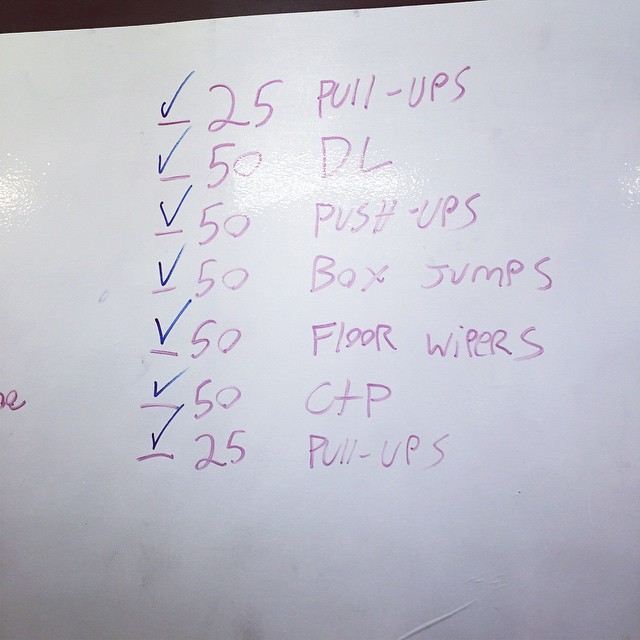 ✓ 25 PUll-UPS
✓ 50 DL
✓ 50 PUSH-UPS
✓ 50 BOX JUMPS
✓ 50 FlOOR WIPERS
✓ 50 C+P
✓ 25 PUll-UPS